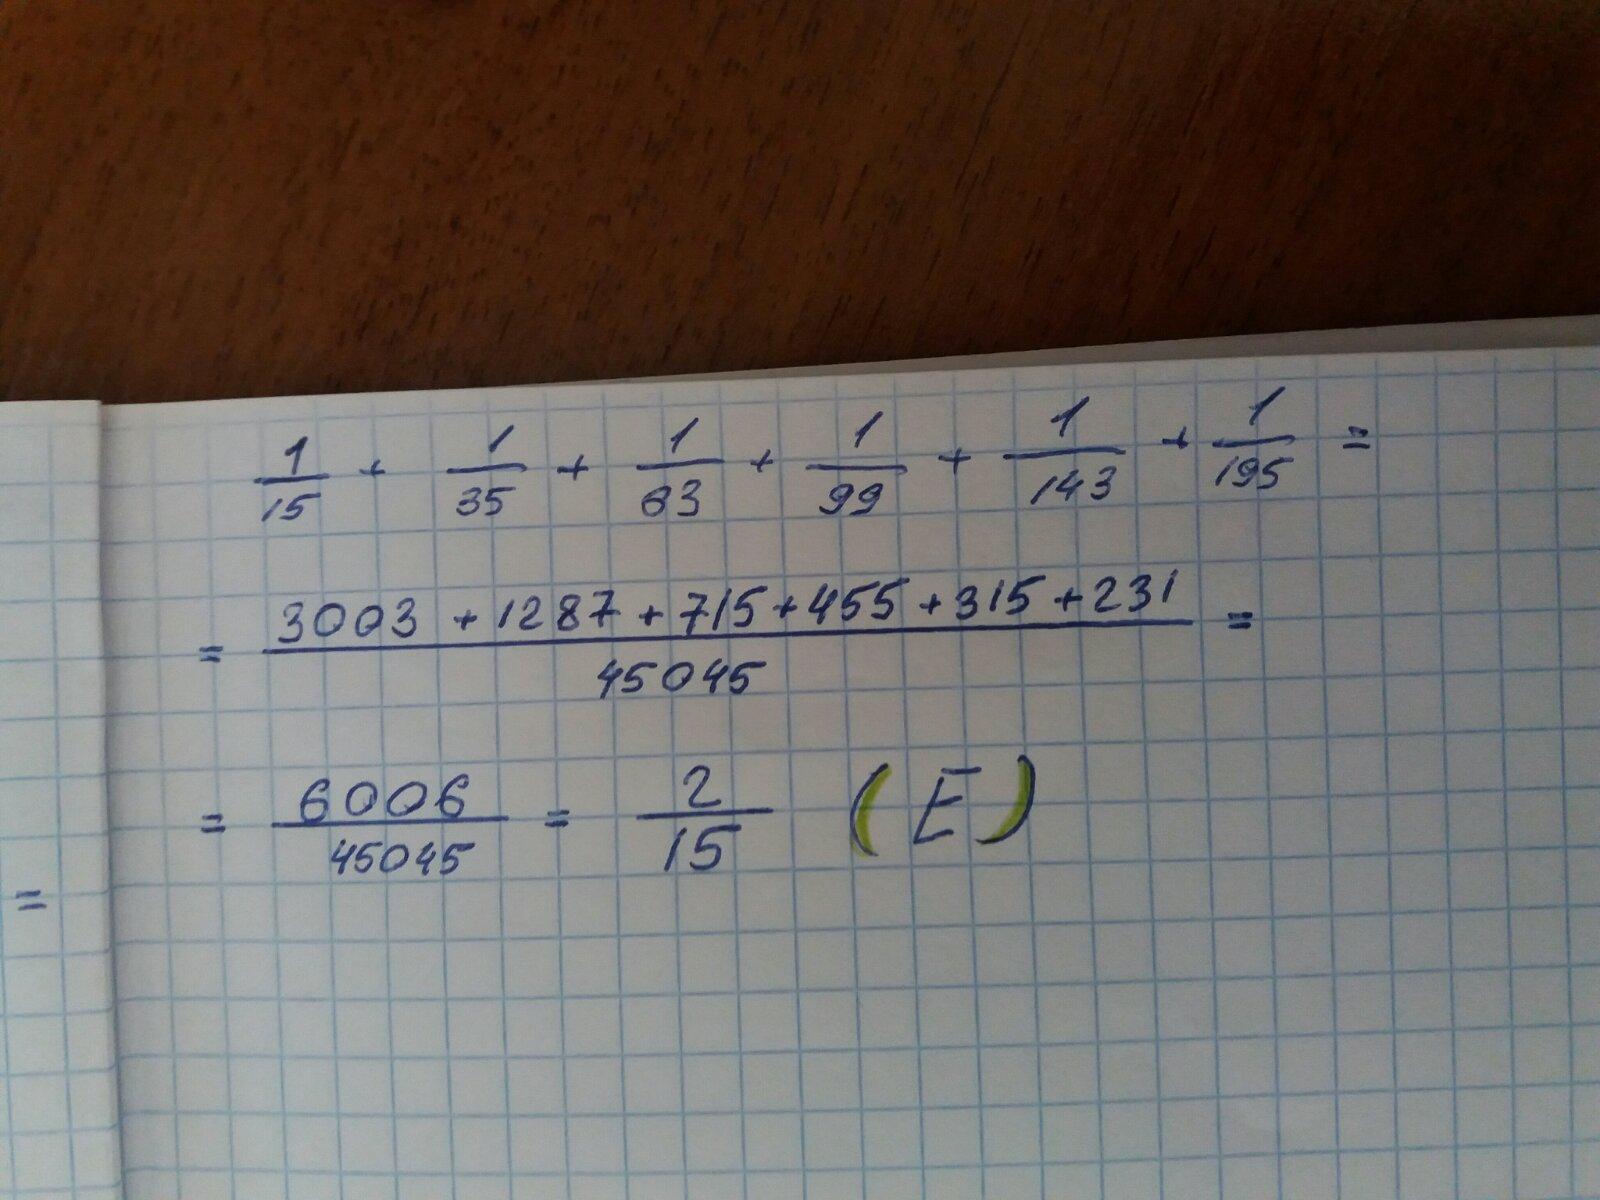 1/15 + 1/35 + 1/63 + 1/99 + 1/143 + 1/195 =
= (3003 + 1287 + 715 + 455 + 315 + 231)/45045 =
= 6006/45045 = 2/15 (E)
=